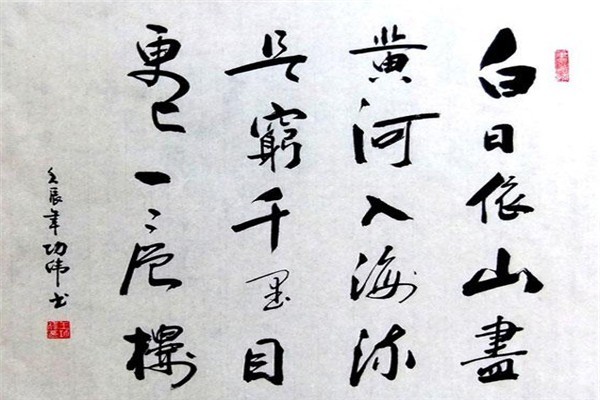 白日依山盡
黄河入海流
欲窮千里目
更上一层樓
壬辰年功伟书